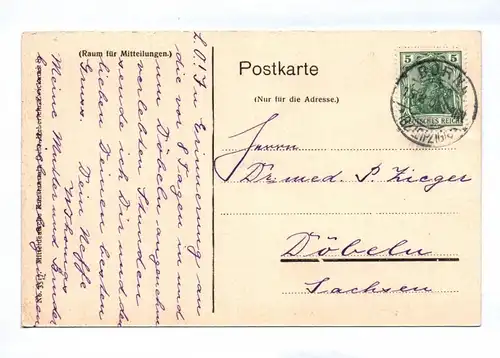 (Raum für Mitteilungen.)
L. O! In Erinnerung an
die vor 8 Tagen in und
um Döbeln angenehm
verlebten Stunden
sende ich Dir und den
lieben Deinen besten
Gruss. Dein Neffe
W. Thomas
Meine Mutter und Bruder
Postkarte
(Nur für die Adresse.)
5 5
DEUTSCHES REICH
BORNA
(BZ. LEIPZIG)
Herrn
Dr. med. P. Zieger
Döbeln
Sachsen